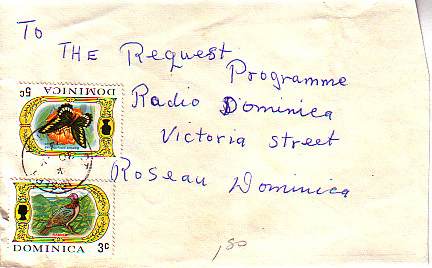 To
THE Request
Programme
Radio Dominica
Victoria street
Roseau Dominica
DOMINICA 5c
DOMINICA 3c
,50